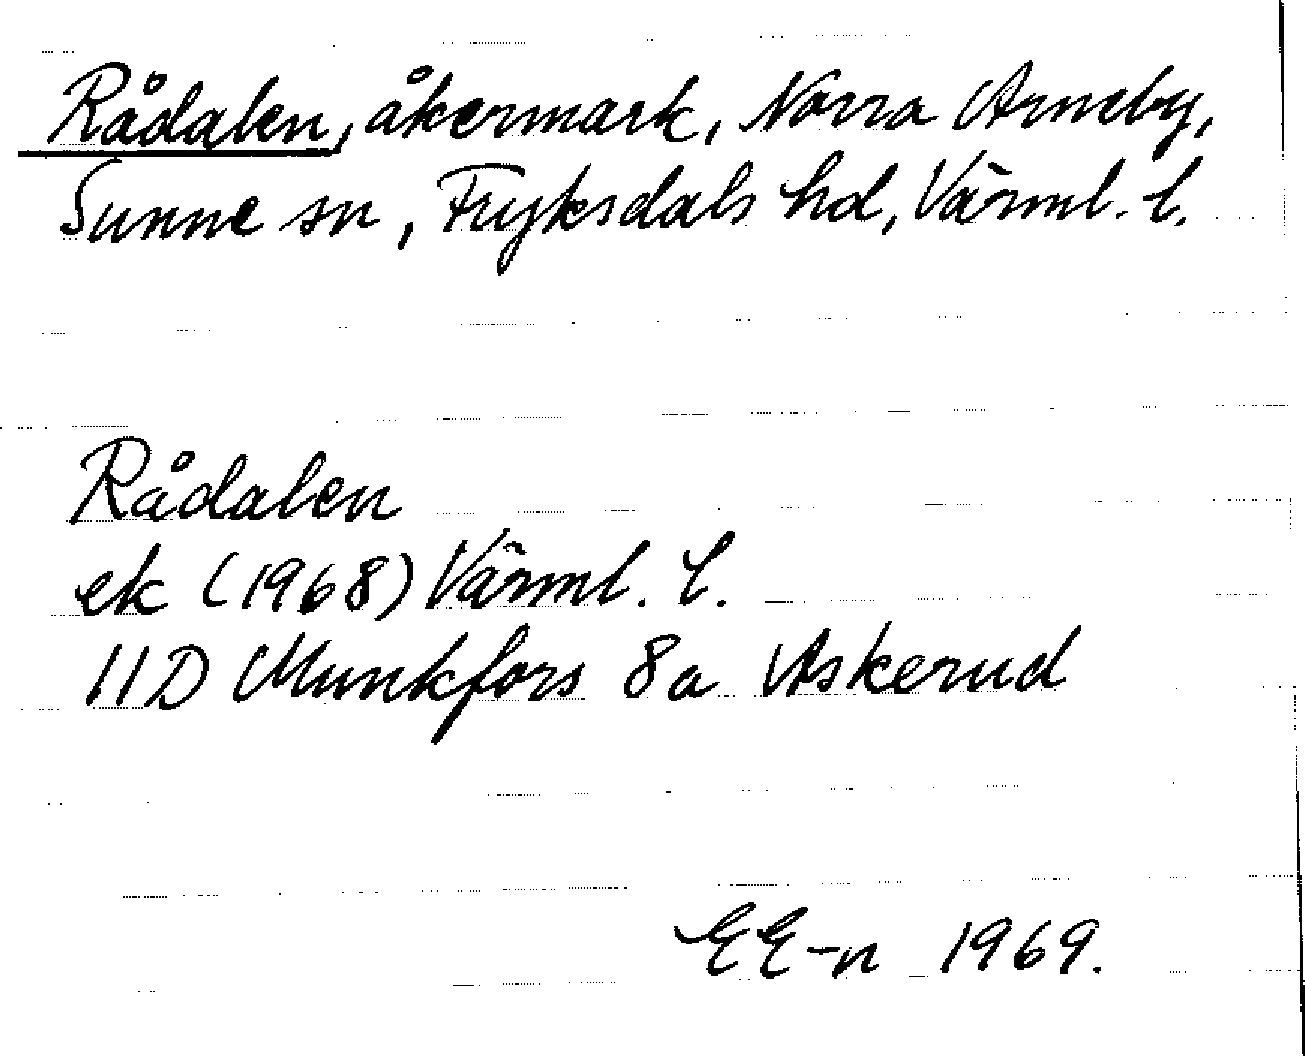 Rådalen, åkermark, Norra Arneby,
Sunne sn, Fryksdals hd, Värml. l.
Rådalen
ek (1968) Värml. l.
11D Munkfors 8a Askerud
EE-n 1969.